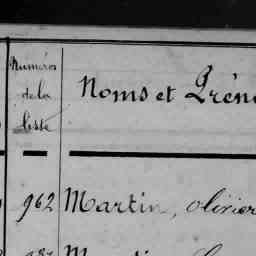 Numéros
de la
liste
Noms et Prén
962 Martin, olivier